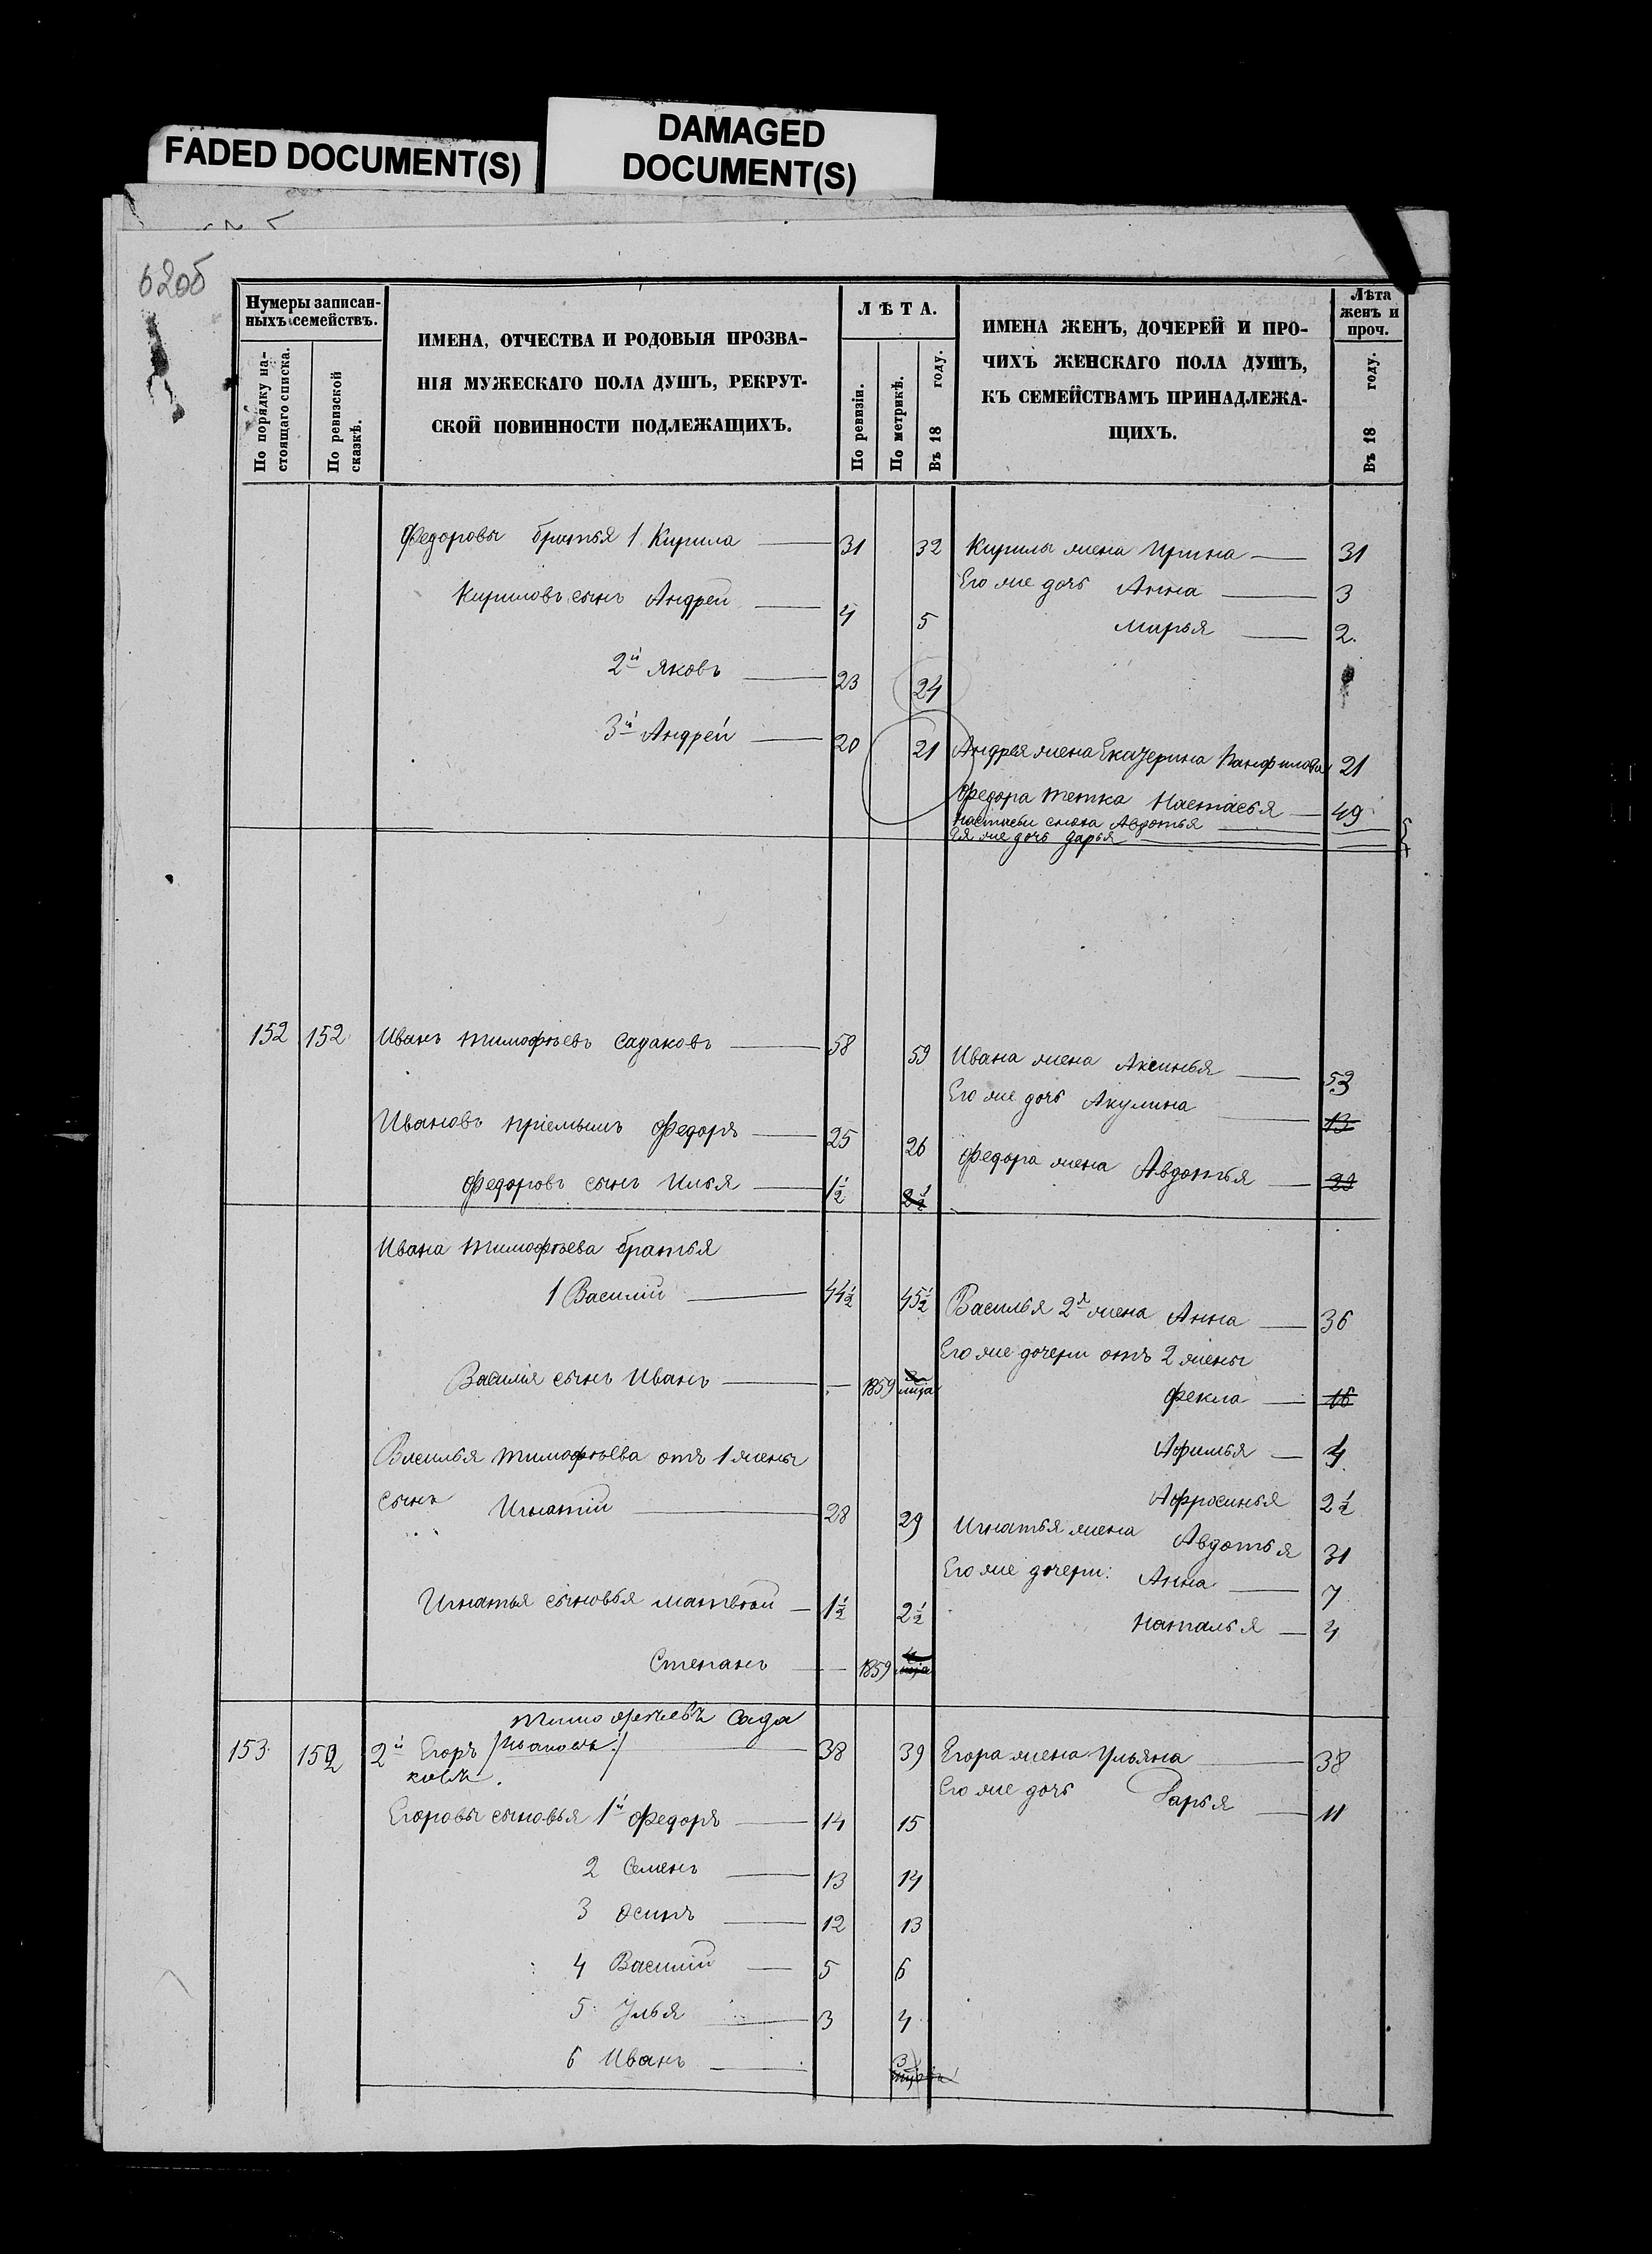 FADED DOCUMENT(S)
DAMAGED
DOCUMENT(S)
62об
Нумеры записан-
ныхъ семействъ.
По порядку на-
стоящаго списка.
По ревизской
сказкѣ.
ИМЕНА, ОТЧЕСТВА И РОДОВЫЯ ПРОЗВА-
НІЯ МУЖЕСКАГО ПОЛА ДУШЪ, РЕКРУТ-
СКОЙ ПОВИННОСТИ ПОДЛЕЖАЩИХЪ.
ЛѢТА.
По ревизіи.
По метрикѣ.
Въ 18 году.
ИМЕНА ЖЕНЪ, ДОЧЕРЕЙ И ПРО-
ЧИХЪ ЖЕНСКАГО ПОЛА ДУШЪ,
КЪ СЕМЕЙСТВАМЪ ПРИНАДЛЕЖА-
ЩИХЪ.
Лѣта
женъ и
проч.
Въ 18 году.
Федоровы братья 1 Кирила 31 32 Кирилы жена Ирина 31
Его же дочь Анна 3
Кириловъ сынъ Андрей 4 5
Марья 2.
2й Яковъ 23 24
3й Андрей 20 21 Андрея жена Екатерина Панфилова 21
Федора тетка Настасья 49
Настасьи сноха Авдотья
Ея же дочь Дарья
152 152 Иванъ Тимофѣевъ Садаковъ 58 59 Ивана жена Аксинья 53
Его же дочь Акулина 13
Ивановъ пріемышъ Федоръ 25 26 Федора жена Авдотья
Федоровъ сынъ Илья 1½ 2½
Ивана Тимофѣева братья
1 Василій 44½ 45½ Василья 2я жена Анна 36
Его же дочери отъ 2 жены
Василія сынъ Иванъ 1859
Фекла
Василья Тимофѣева отъ 1 жены
Афимья 4
сынъ Игнатій 28 29
Афросинья 2½
Игнатья жена Авдотья 31
Его же дочери: Анна 7
Игнатья сыновья Матвѣй 1½ 2½
Наталья 4
Степанъ 1859
Тимофѣевъ Сада
153 152 2й Егоръ /Ивановъ/ 38 39 Егора жена Ульяна 38
ковъ.
Его же дочь Дарья 11
Егоровы сыновья 1й Федоръ 14 15
2 Семенъ 13 14
3 Осипъ 12 13
4 Василій 5 6
5 Улья 3 4
6 Иванъ